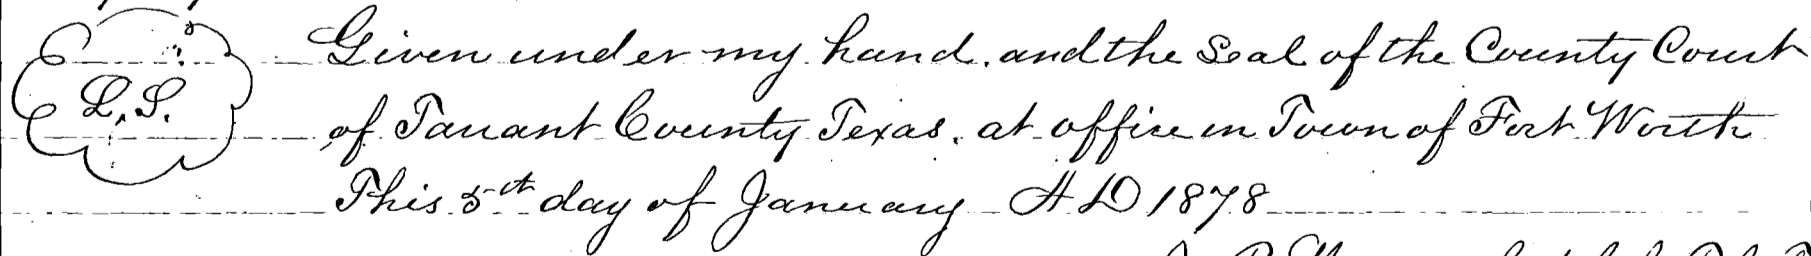 L.S.
Given under my hand. and the Seal of the County Court
of Tarrant County Texas. at office in Town of Fort Worth
This 5th day of January A D 1878